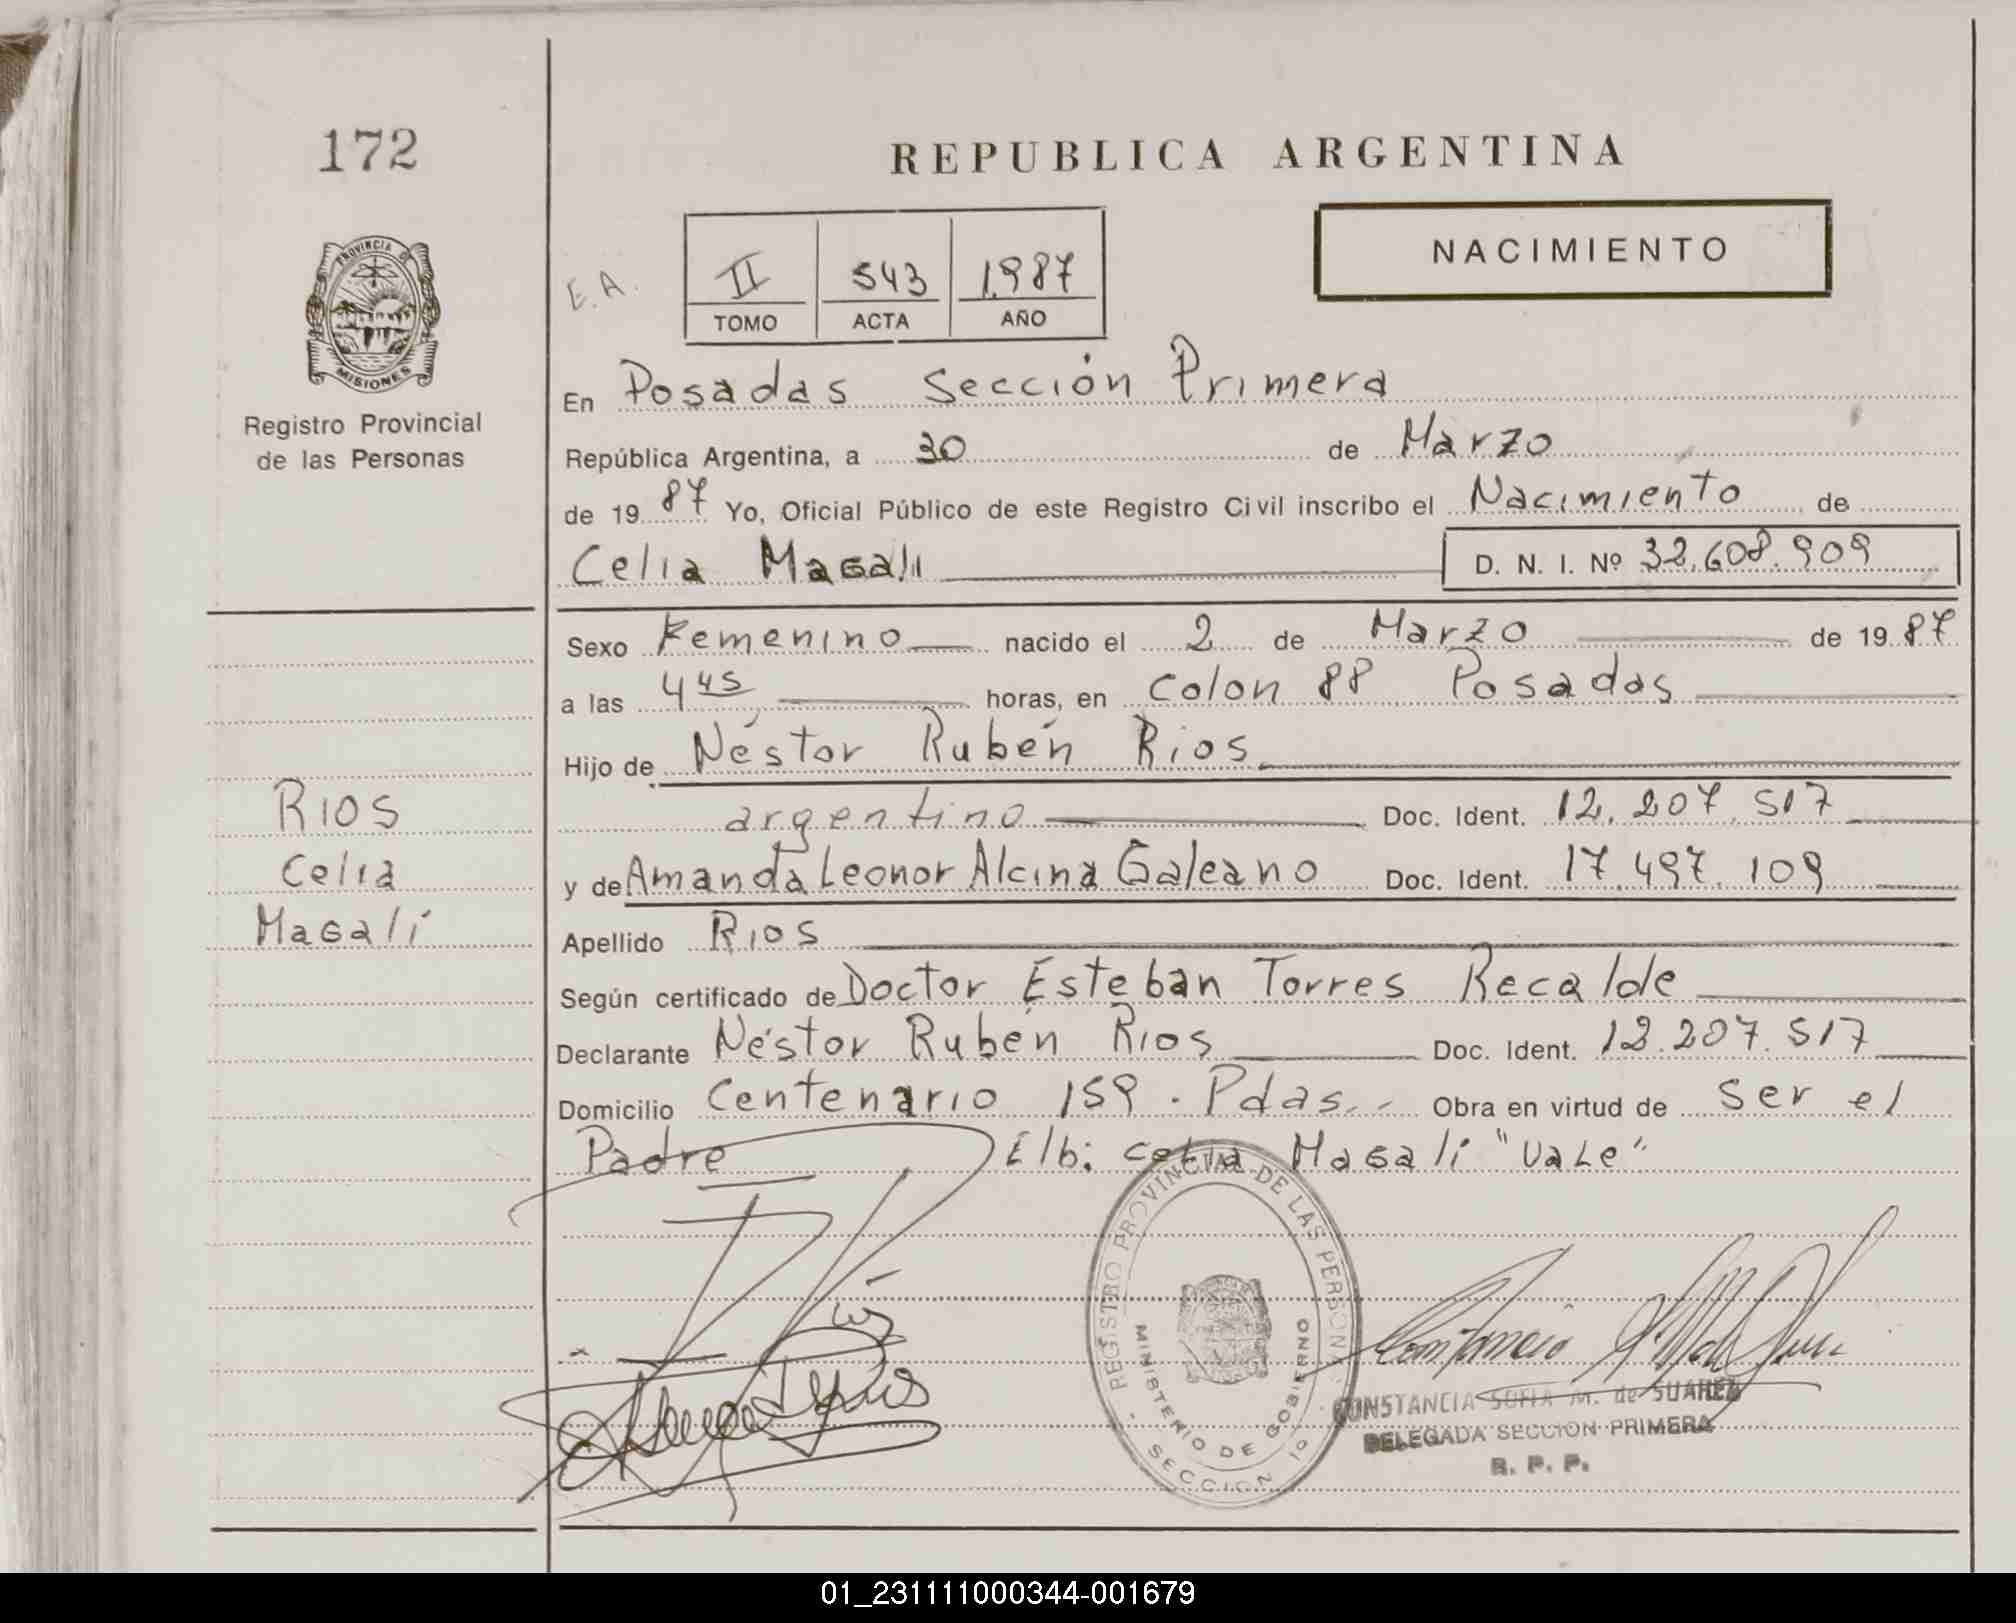 172
REPUBLICA ARGENTINA
NACIMIENTO
E.A.
II 543 1.987
TOMO ACTA AÑO
PROVINCIA D
MISIONES
Registro Provincial
de las Personas
En Posadas Sección Primera
República Argentina, a 30 de Marzo
de 19 87 Yo, Oficial Público de este Registro Civil inscribo el Nacimiento de
Celia Magali D. N. I. Nº 32.608.909
Sexo Femenino nacido el 2 de Marzo de 19 87
a las 4 45 horas, en Colon 88 Posadas
Hijo de Néstor Rubén Rios
argentino Doc. Ident. 12.207.517
y de Amanda Leonor Alcina Galeano Doc. Ident. 17.497.109
Apellido Rios
Según certificado de Doctor Esteban Torres Recalde
Declarante Néstor Rubén Rios Doc. Ident. 12.207.517
Domicilio Centenario 159. Pdas.- Obra en virtud de ser el
Padre E/b: Celia Magali "Vale"
RIOS
Celia
Magalí
REGISTRO PROVINCIAL DE LAS PERSONAS
MINISTERIO DE GOBIERNO
SECCION 1º
CONSTANCIA SOFIA M. de SUAREZ
DELEGADA SECCION PRIMERA
R. P. P.
01_231111000344-001679